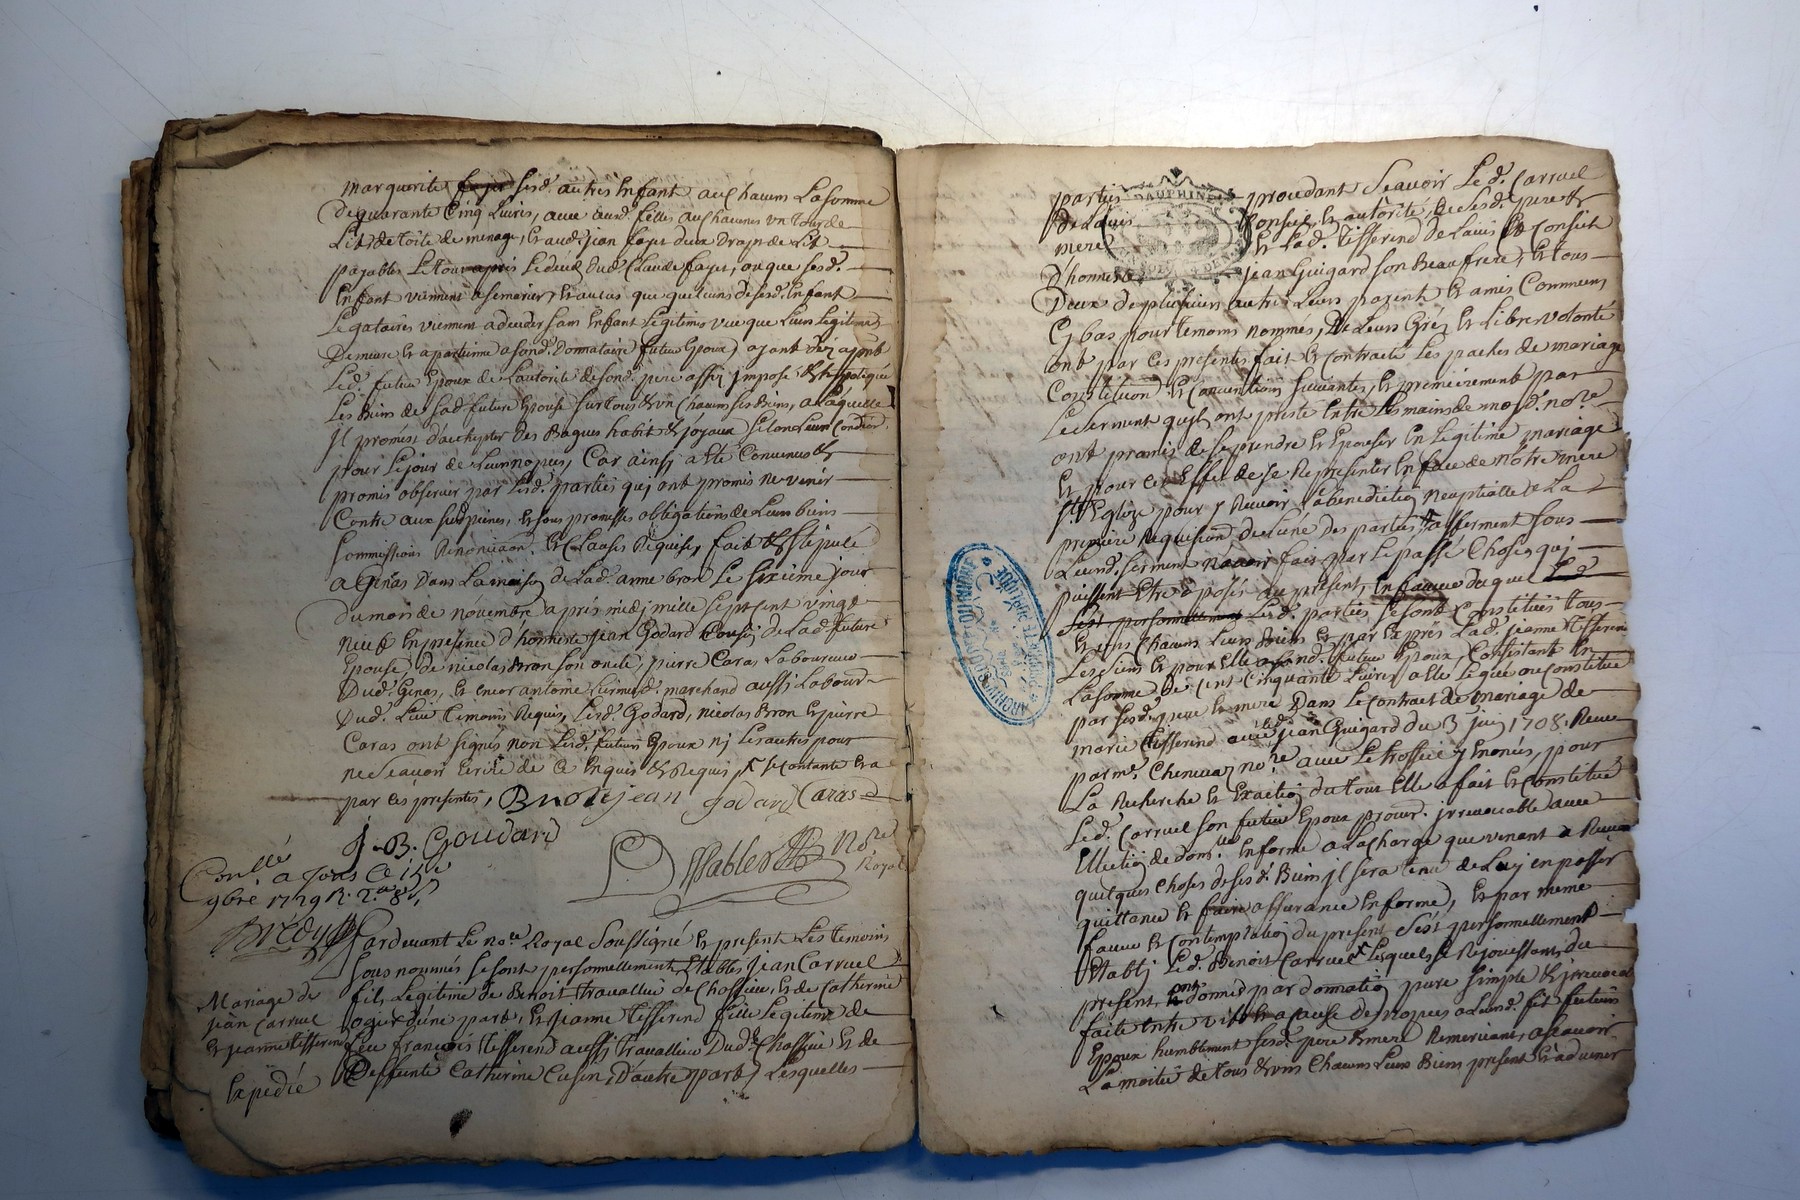 marguerite fayet sesd. autres Enfant a un Chacuns La somme
de quarante Cinq Livres, avec ausd. filles a un Chacunes un tour de
Lit de toile de menage, Et aud. jean fayet deux Draps de Lit
payables Le tout apres Le deced dud. Claude fayet, ou que sesd.
Enfant viennent a semarier, Et au cas que quelcuns de sesd. Enfant
Legataires viennent a deceder sans Enfant Legitimes veue que Leurs Legitimes
Demeure Et apartienne a sond. Donnataire futeur Epoux, ayant
Led. futeur Epoux de Lautorité de sond. pere assis Imposé & hipotequé
Les Biens de Lad. future Epouse sur tous & un Chacuns ses Biens, a Laquelle
Il promest d'achepter des Bagues habit & joyaux selon Leurs Condition
pour Le jour de Leurs nopces, Car ainsy a eté Convenus &
promis observer par Lesd. parties qui ont promis ne venir
Contre aux susd peines, Et sous promesses obligations de Leurs biens
Soumissions Renonciaon. Et Clauses Requises, fait & stipulé
a Genas dans La maison de Lad. anne bron Le sixième jour
du mois de novembre apres midy mille sept cent vingt
neuf En presence d'honnête jean Godard Cousin de Lad. future
Epouse, de nicolas Bron son oncle, pierre Caras Laboureur
Dud. Genas, Et encor antoine marchand aussi Labour
Dud. Lieu temoins Requis, Lesd. Godard, nicolas Bron Et pierre
Caras ont signés non Lesd. futeurs Epoux ny Les autres pour
ne Scavoir Ecrire de Ce Enquis & Requis
par ces presentes, Bron jean godard Caras
J. B. Goudard
Conllé a Jons Ce 15e
9bre 1729 R.
Nore Royal
Par devant Le nore Royal Soussigné Et present Les temoins
sous nommés se sont personnellement Etablis Jean Carruel
fils Legitime de Benoit travallieur de Chassieu, Et de Catherine
ogier d'une part, Et Jeanne tisserend fille Legitime de
feu francois tisserend aussi travallieur Dud. Chassieu Et de
Deffunte Catherine Cusin, D'autre part, Lesquelles
Mariage de
jean Carruel
Et jeanne tisserend
Expedié
DAUPHINE
parties procedant Scavoir Led. Carruel
De Lavis Conseil Et autorité, de sesd. pere &
mere Et Lad. tisserend de Lavis & Conseil
d'honnete jean Guigard son Beaufrere, Et tous
Deux de plusieurs autres Leurs parents Et amis Communs
Cy bas pour temoins nommés, De Leurs Gréz Et Libre volonté
ont par Ces presentes fait Et Contracté Les paches de mariage
Constitution Et Conventions suivantes, Et premierement par
Le serment quils ont presté Entre Les mains de mo. d. nore
ont promis de se prendre Et Epouser En Legitime mariage
Et pour Cet Effet de se Representer En face de notre mere
Ste Eglize pour y Recevoir La benediction neuptialle a La
premiere Requisiond. de L'une des parties afferment sous
Leursd. serment n'avoir fait par Le passé Choses qui
puissent Etre oposés au present, En faveur duquel
s'est personnellement Lesd. parties se sont Constitués tous
Et uns Chacuns Leurs Biens Et par Exprés Lad. jeanne tisserend
Les siens Et pour Elle a sond. futeur Epoux, Consistant En
La somme de Cent Cinquante Livres a Elle Legué ou Constitué
par sesd. pere Et mere Dans Le Contract de mariage de
marie tisserend avec led. jean Guigard du 3 juin 1708. Receu
par me. Chenevaz nore avec Le trossel y Enoncés, pour
La Recherche Et Exaction du tout Elle a fait Et Constitué
Led. Carruel son futeur Epoux procur. irrevocable avec
Election de domlle En forme a La Charge que venant a Recevoir
quelques Choses de sesd. Biens il sera tenu de Luy en passer
quittance Et faire assurance En forme, Et par meme
faveur Et Contemplation du present s'est personnellement
Etabli Led. Benoit Carruel Lesquels se Rejouissants du
present ont donnés par donnation pure simple & irrevocable
faite Entre vifs Et a Cause de Nopces a Leursd. fils futeur
Epoux humblement sesd. pere & mere Remerciant, a Scavoir
La moitié de tous & uns Chacuns Leurs Biens present Et advenir